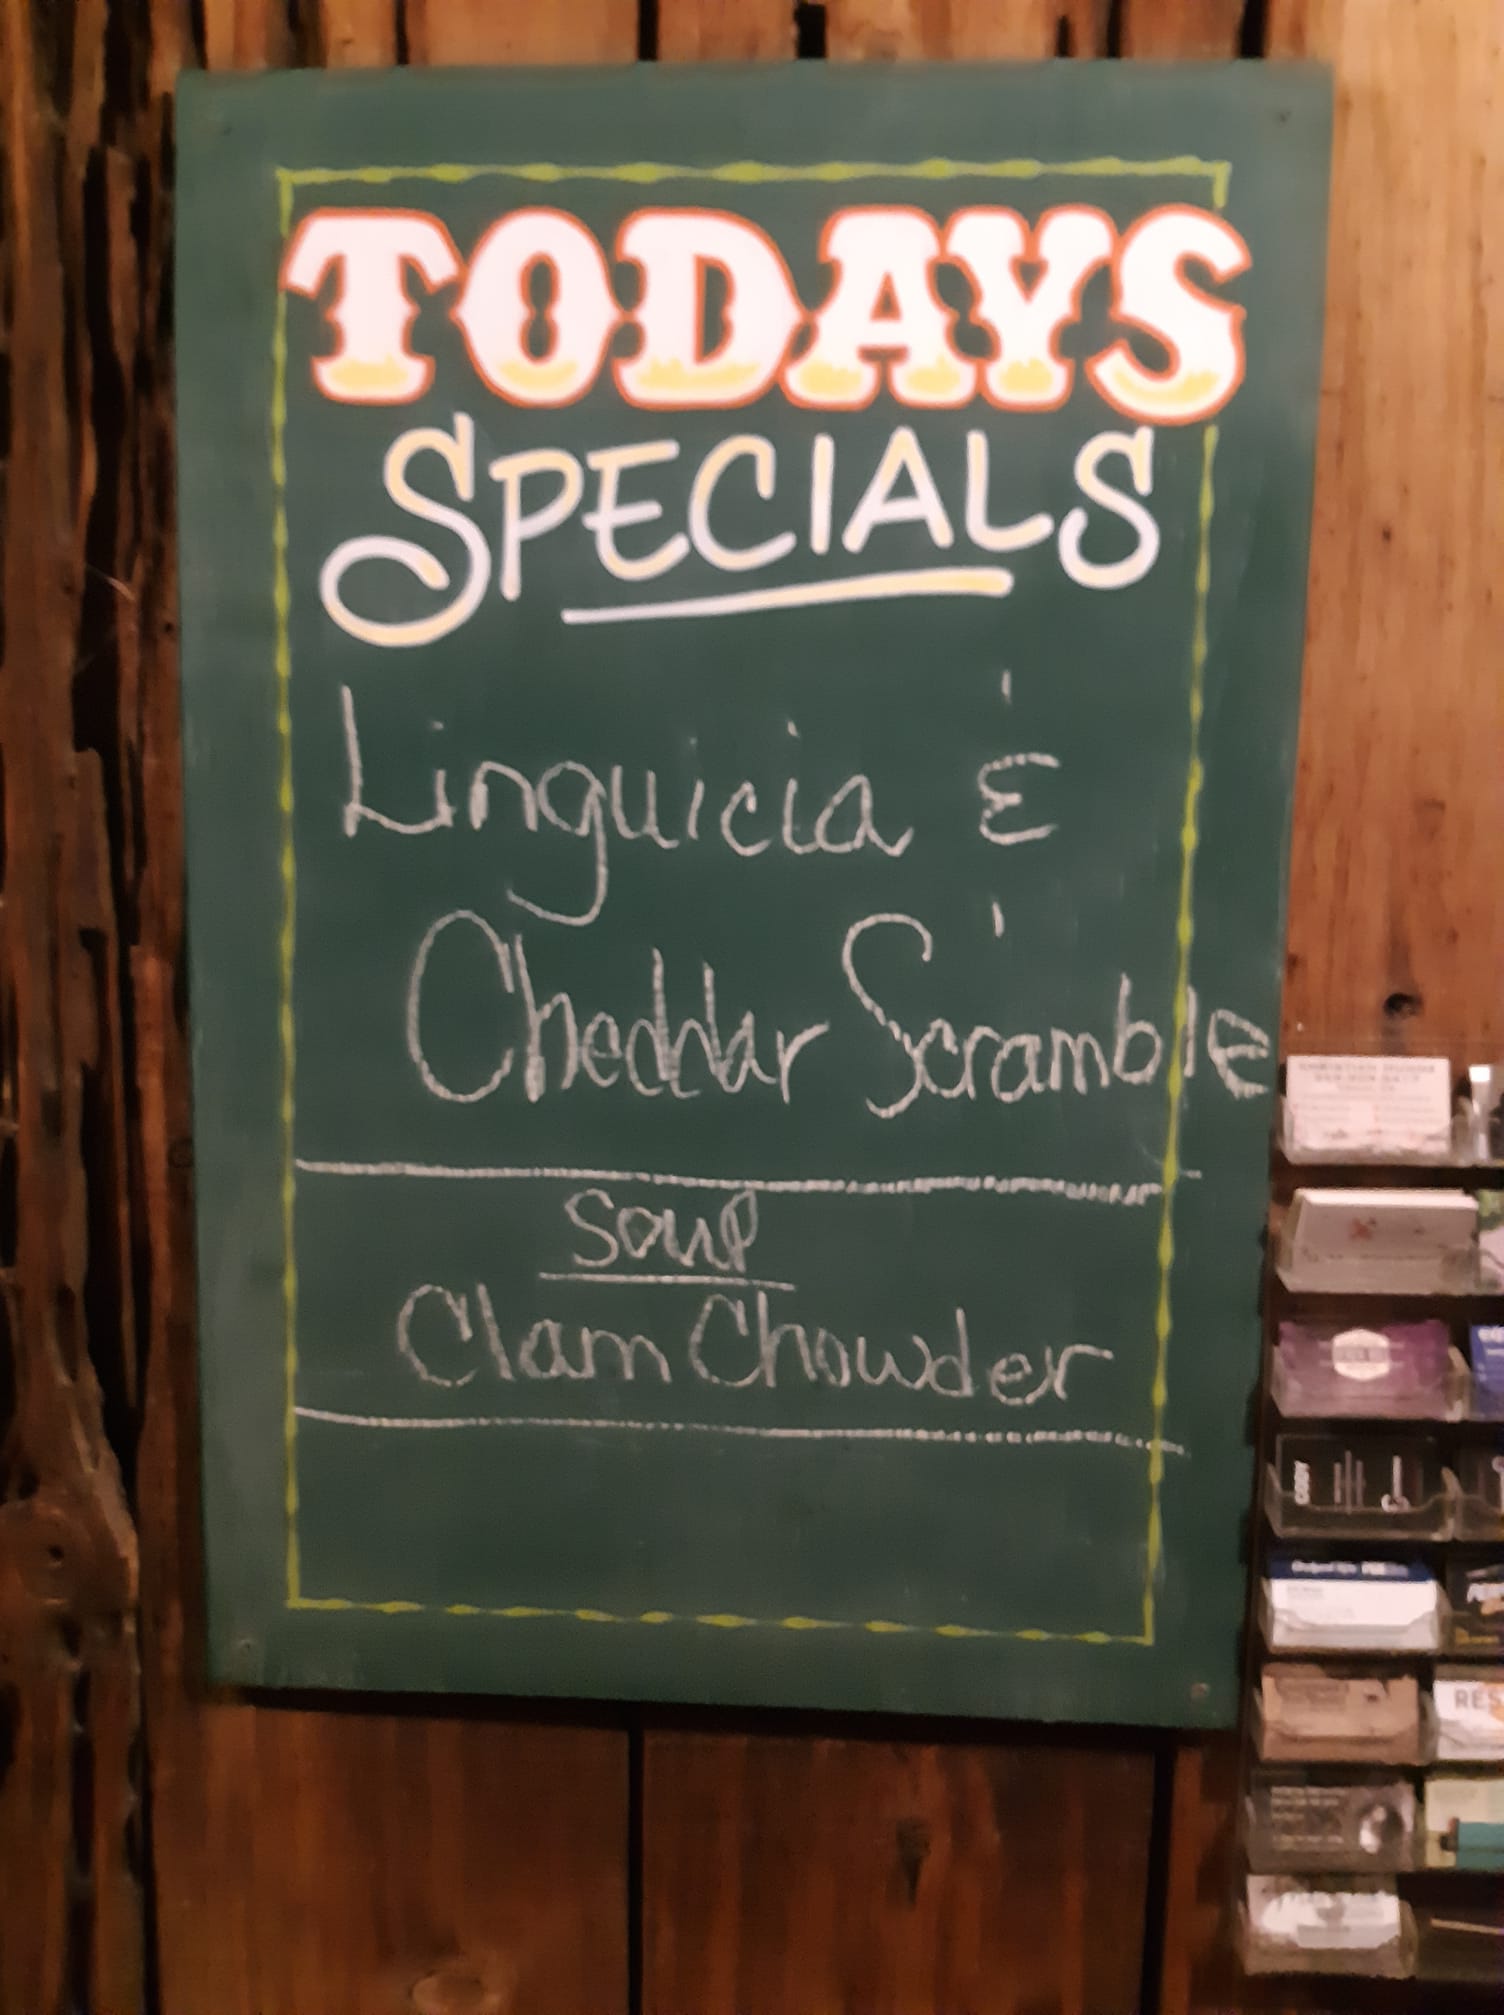 TODAYS
SPECIALS
Linguicia &
Cheddar Scramble
Soup
Clam Chowder
CODY
RES